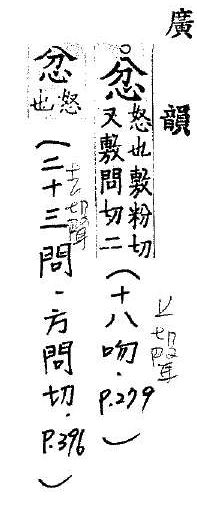 廣韻
忿怒也敷粉切又敷問切二(十八吻.P.279)
上声
忿怒也(二十三問.方問切.P.396)
去声